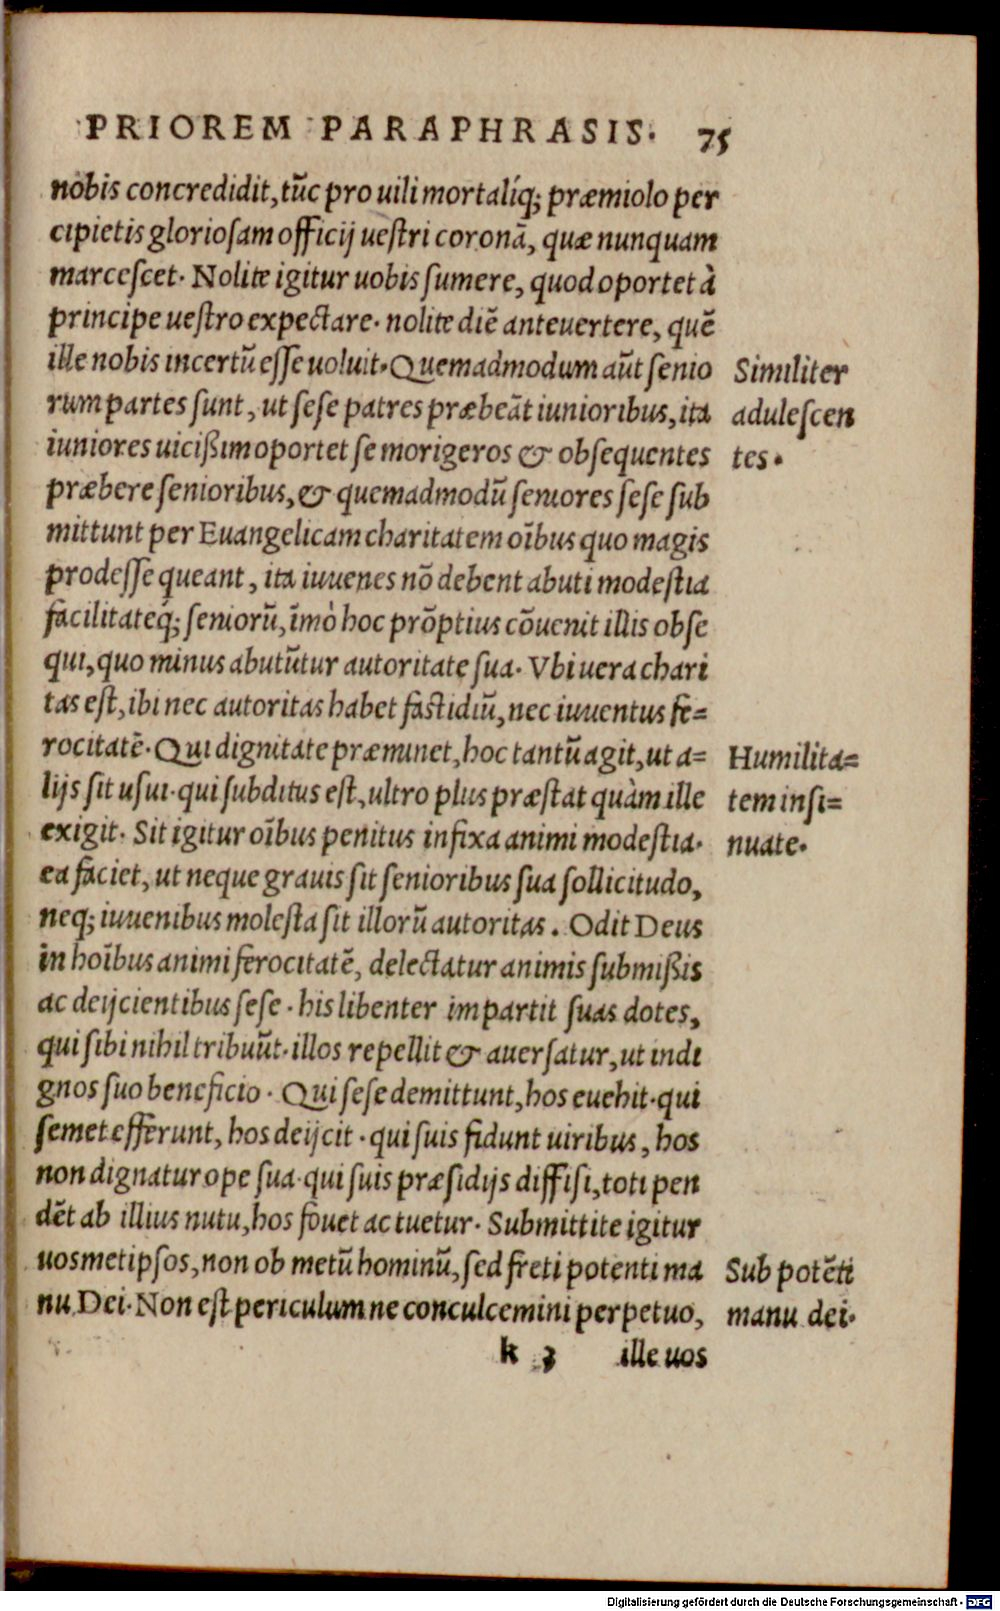 PRIOREM PARAPHRASIS. 75
nobis concredidit, tũc pro uili mortaliq́; præmiolo per
cipietis gloriosam officij uestri coronã, quæ nunquam
marcescet. Nolite igitur uobis sumere, quod oportet à
principe uestro expectare. nolite diẽ anteuertere, quẽ
ille nobis incertũ esse uoluit. Quemadmodum aũt senio
rum partes sunt, ut sese patres præbeãt iunioribus, ita
iuniores uicißim oportet se morigeros & obsequentes
præbere senioribus, & quemadmodũ seniores sese sub
mittunt per Euangelicam charitatem oĩbus quo magis
prodesse queant, ita iuuenes nõ debent abuti modestia
facilitateq́; seniorũ, ĩmò hoc prõptius cõuenit illis obse
qui, quo minus abutũtur autoritate sua. Vbi uera chari
tas est, ibi nec autoritas habet fastidiũ, nec iuuentus fe=
rocitatẽ. Qui dignitate præminet, hoc tantũ agit, ut a=
lijs sit usui. qui subditus est, ultro plus præstat quàm ille
exigit. Sit igitur oĩbus penitus infixa animi modestia.
ea faciet, ut neque grauis sit senioribus sua sollicitudo,
neq; iuuenibus molesta sit illorũ autoritas. Odit Deus
in hoĩbus animi ferocitatẽ, delectatur animis submißis
ac deijcientibus sese. his libenter impartit suas dotes,
qui sibi nihil tribuũt. illos repellit & auersatur, ut indi
gnos suo beneficio. Qui sese demittunt, hos euehit. qui
semet efferunt, hos deijcit. qui suis fidunt uiribus, hos
non dignatur ope sua. qui suis præsidijs diffisi, toti pen
dẽt ab illius nutu, hos fouet ac tuetur. Submittite igitur
uosmetipsos, non ob metũ hominũ, sed freti potenti ma
nu Dei. Non est periculum ne conculcemini perpetuo,
k 3 ille uos
Similiter
adulescen
tes.
Humilita=
tem insi=
nuate.
Sub potẽti
manu dei.
Digitalisierung gefördert durch die Deutsche Forschungsgemeinschaft - DFG